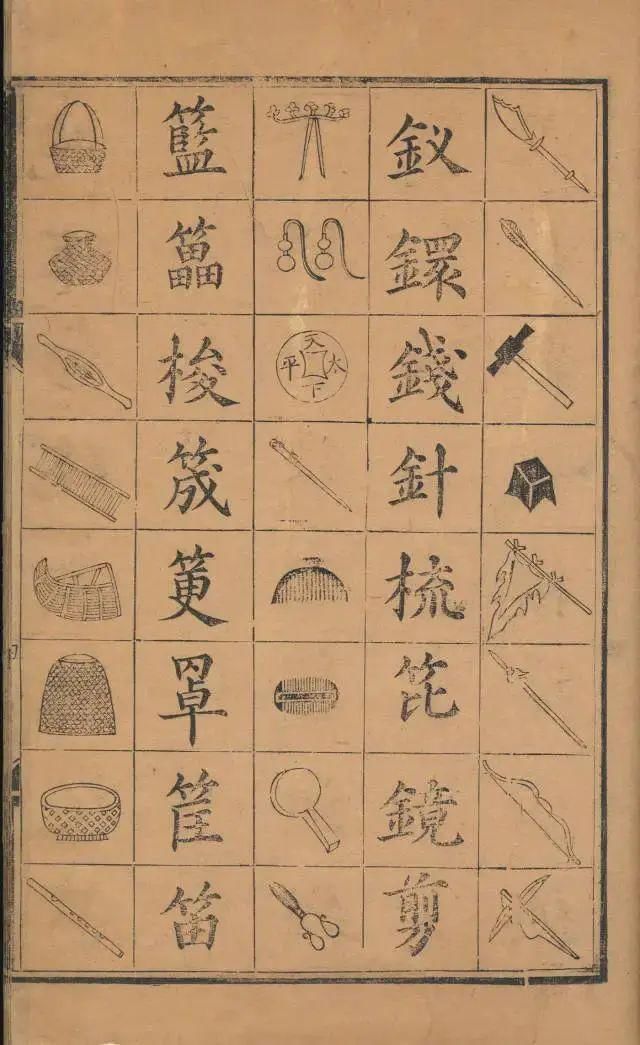 釵鐶錢針梳笓鏡剪
天下太平
籃梭筬筻罩筐笛